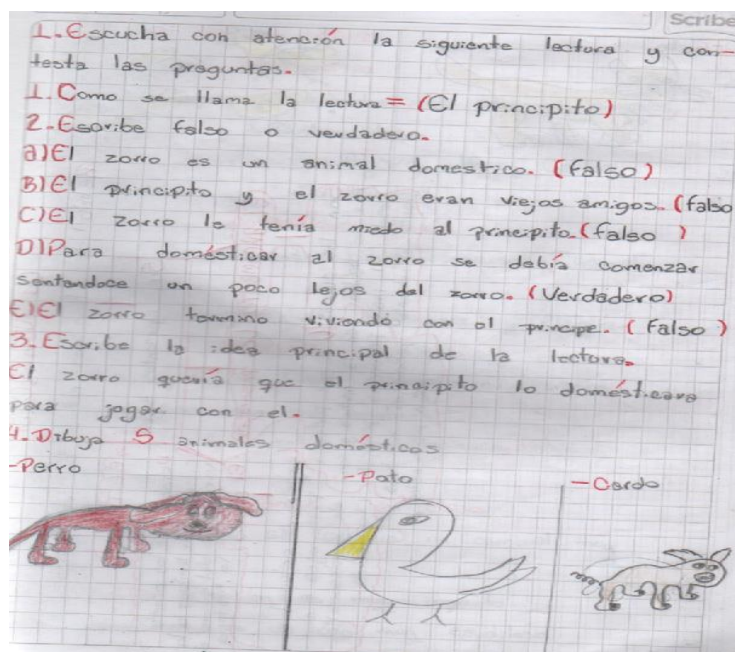 Scribe
1.-Escucha con atención la siguiente lectura y con-
testa las preguntas.
1.Como se llama la lectura = (El principito)
2.-Esoribe falso o verdadero.
a)El zorro es un animal domestico. (falso)
B)El principito y el zorro eran viejos amigos. (falso
C)El zorro le tenía miedo al principito. (falso )
D)Para domésticar al zorro se debía comenzar
sentandoce un poco lejos del zorro. (Verdadero)
E)El zorro termino viviendo con el principe. ( Falso )
3.Escribe la idea principal de la lectura.
El zorro quería que el principito lo domésticara
para jogar con el.
4.-Dibuja 5 animales domésticos
-Perro
-Pato
-Cerdo